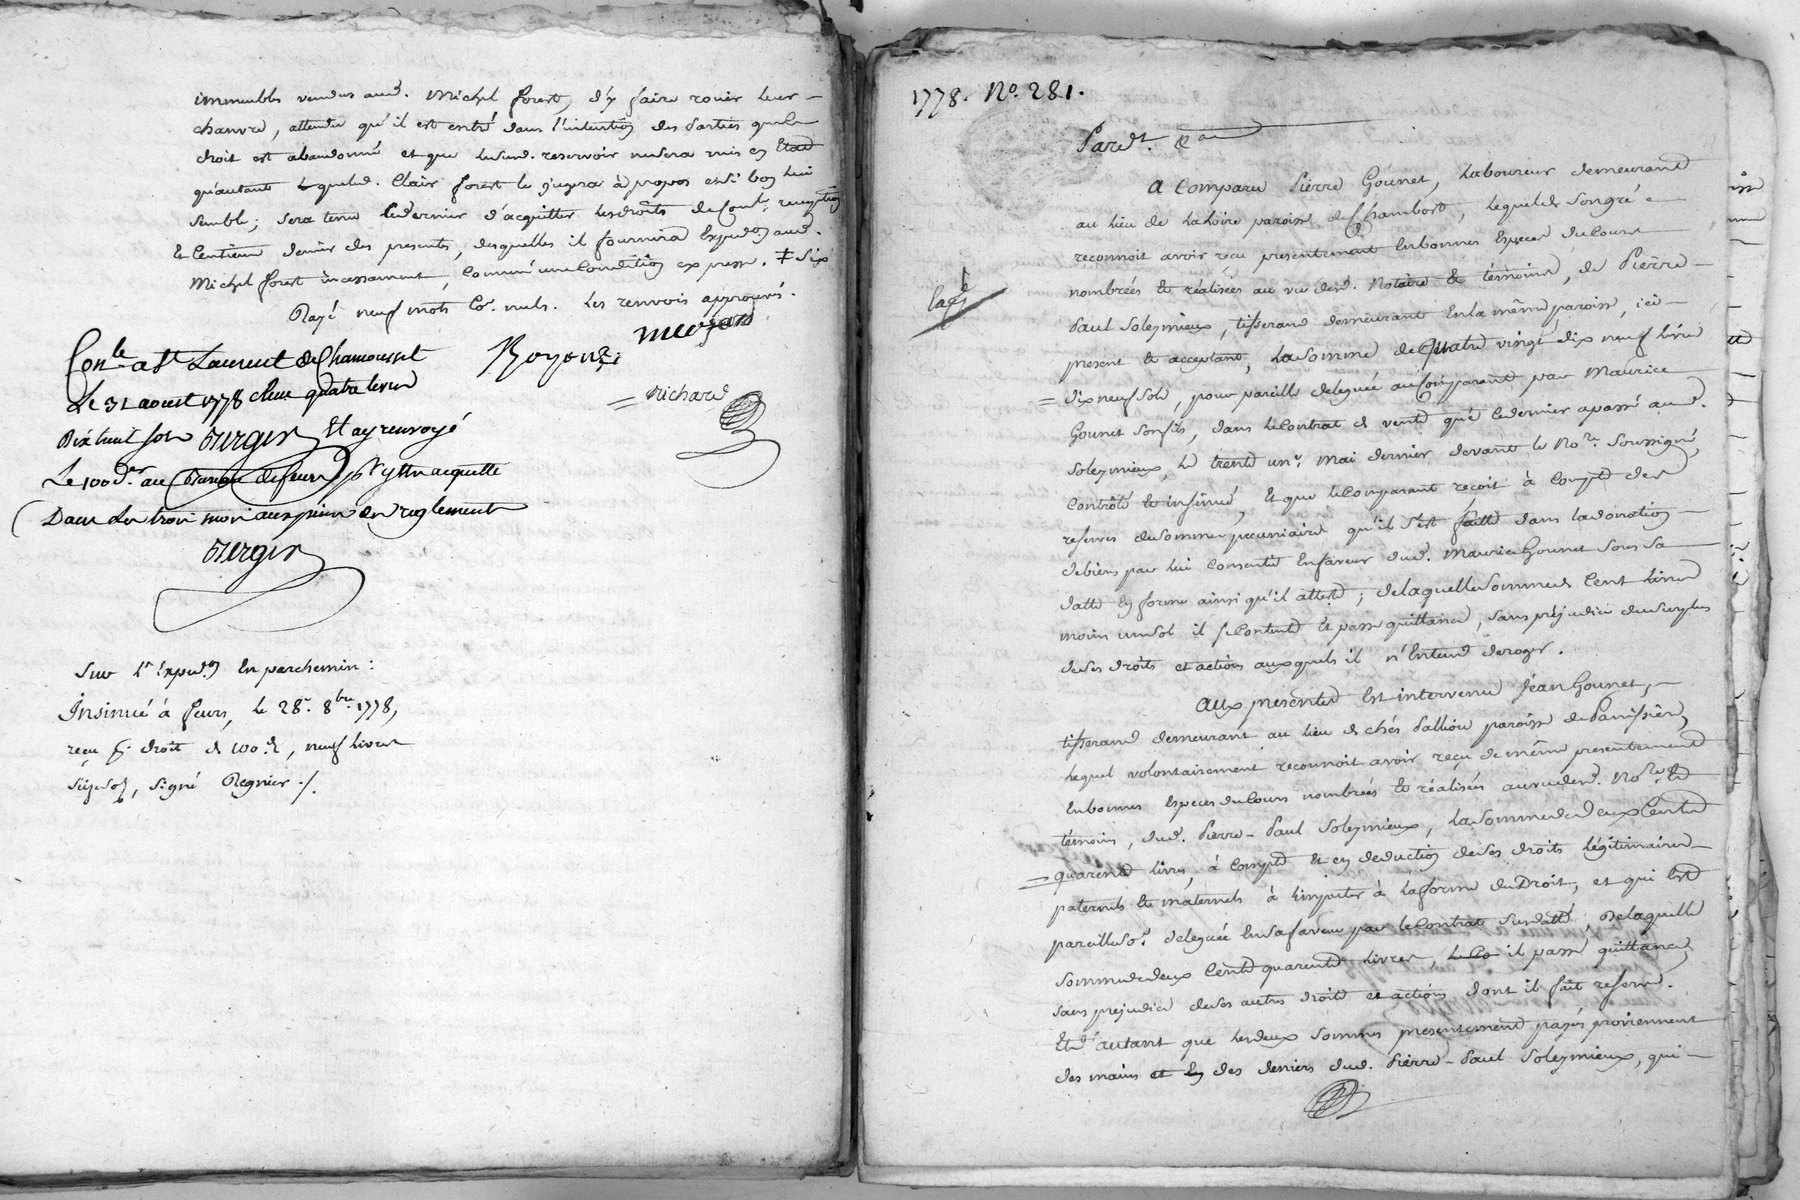 immeubles vendus aud. Michel forest, d'y faire rouir leur
chanvre, attendu qu'il est entré dans l'intention des parties que le
droit est abandonné et que led. reservoir ne sera mis en Etat
qu'autant que led. Clair forest le jugera à propos et si bon lui
semble; sera tenu ce dernier d'acquitter les droits de Conle. reception
et Centieme denier des presentes, desquelles il fournira Expedon. aud.
Michel forest incessament, comme une Condition expresse. ‡ Six
Rayé neuf mots Co. nuls. Les renvois approuvés.
Conle. a St. Laurent de Chamousset
Le 31 aoust 1778
dix huit sols Et ay renvoyé
Le 100 der. au Bureau de feurs pr. y etre acquitté
Dans les trois mois aux peines des reglements
Richard
Sur l'Expedon. En parchemin:
Insinué à feurs, le 28e. 8bre. 1778,
reçu pr. droit de 100e. d., neuf livres
seize sols, signé Regnier ./.
1778. No. 281.
Pardt. &a
A Comparu Pierre Gounet, Laboureur demeurant
au lieu de la Loire paroisse de Chambost, lequel de son gré
reconnoit avoir reçu presentement En bonnes Especes du Cours
nombrées et réalisées au vu desd. Notaire et témoins, de Pierre
Paul Soleymieux, tisserand demeurant En la même paroisse, ici
present et acceptant, La somme de Quatre vingt dix neuf livres
= dix neuf sols, pour pareille deleguée au Comparant par Maurice
Gounet son fils, dans le Contrat de vente que ce dernier a passé aud.
Soleymieux, le trente un. Mai dernier devant le Nore. Soussigné,
Contrôlé et insinué, Et que le Comparant reçoit à Compte des
reserves de sommes pecuniaires qu'il s'est faites dans la donation
de biens par lui Consentie En faveur dud. Maurice Gounet sous sa
datte En forme ainsi qu'il atteste; de laquelle somme de Cent livres
moins un sol il se Contente Et passe quittance, sans préjudice du surplus
de ses droits et actions auxquels il n'Entend deroger.
Aux presentes Est intervenu Jean Gounet,
tisserand demeurant au lieu de chés Palliou paroisse de Panissière,
lequel volontairement reconnoit avoir reçu de même presentement
En bonnes Especes du Cours nombrées et réalisées au vu desd. Nore. Et
témoins, dud. Pierre-Paul Soleymieux, la somme de deux Cents
= quarente livres, à Compte Et en deduction de ses droits légitimaires
paternels et maternels à imputer à la forme du Droit, et qui Est
pareille so. deleguée En sa faveur par le Contrat susdatté; De laquelle
somme de deux Cents quarente livres, il passe quittance,
sans prejudice de ses autres droits et actions dont il fait reserve.
Et d'autant que les deux sommes presentement payés proviennent
des mains et des deniers dud. Pierre-Paul Soleymieux, qui